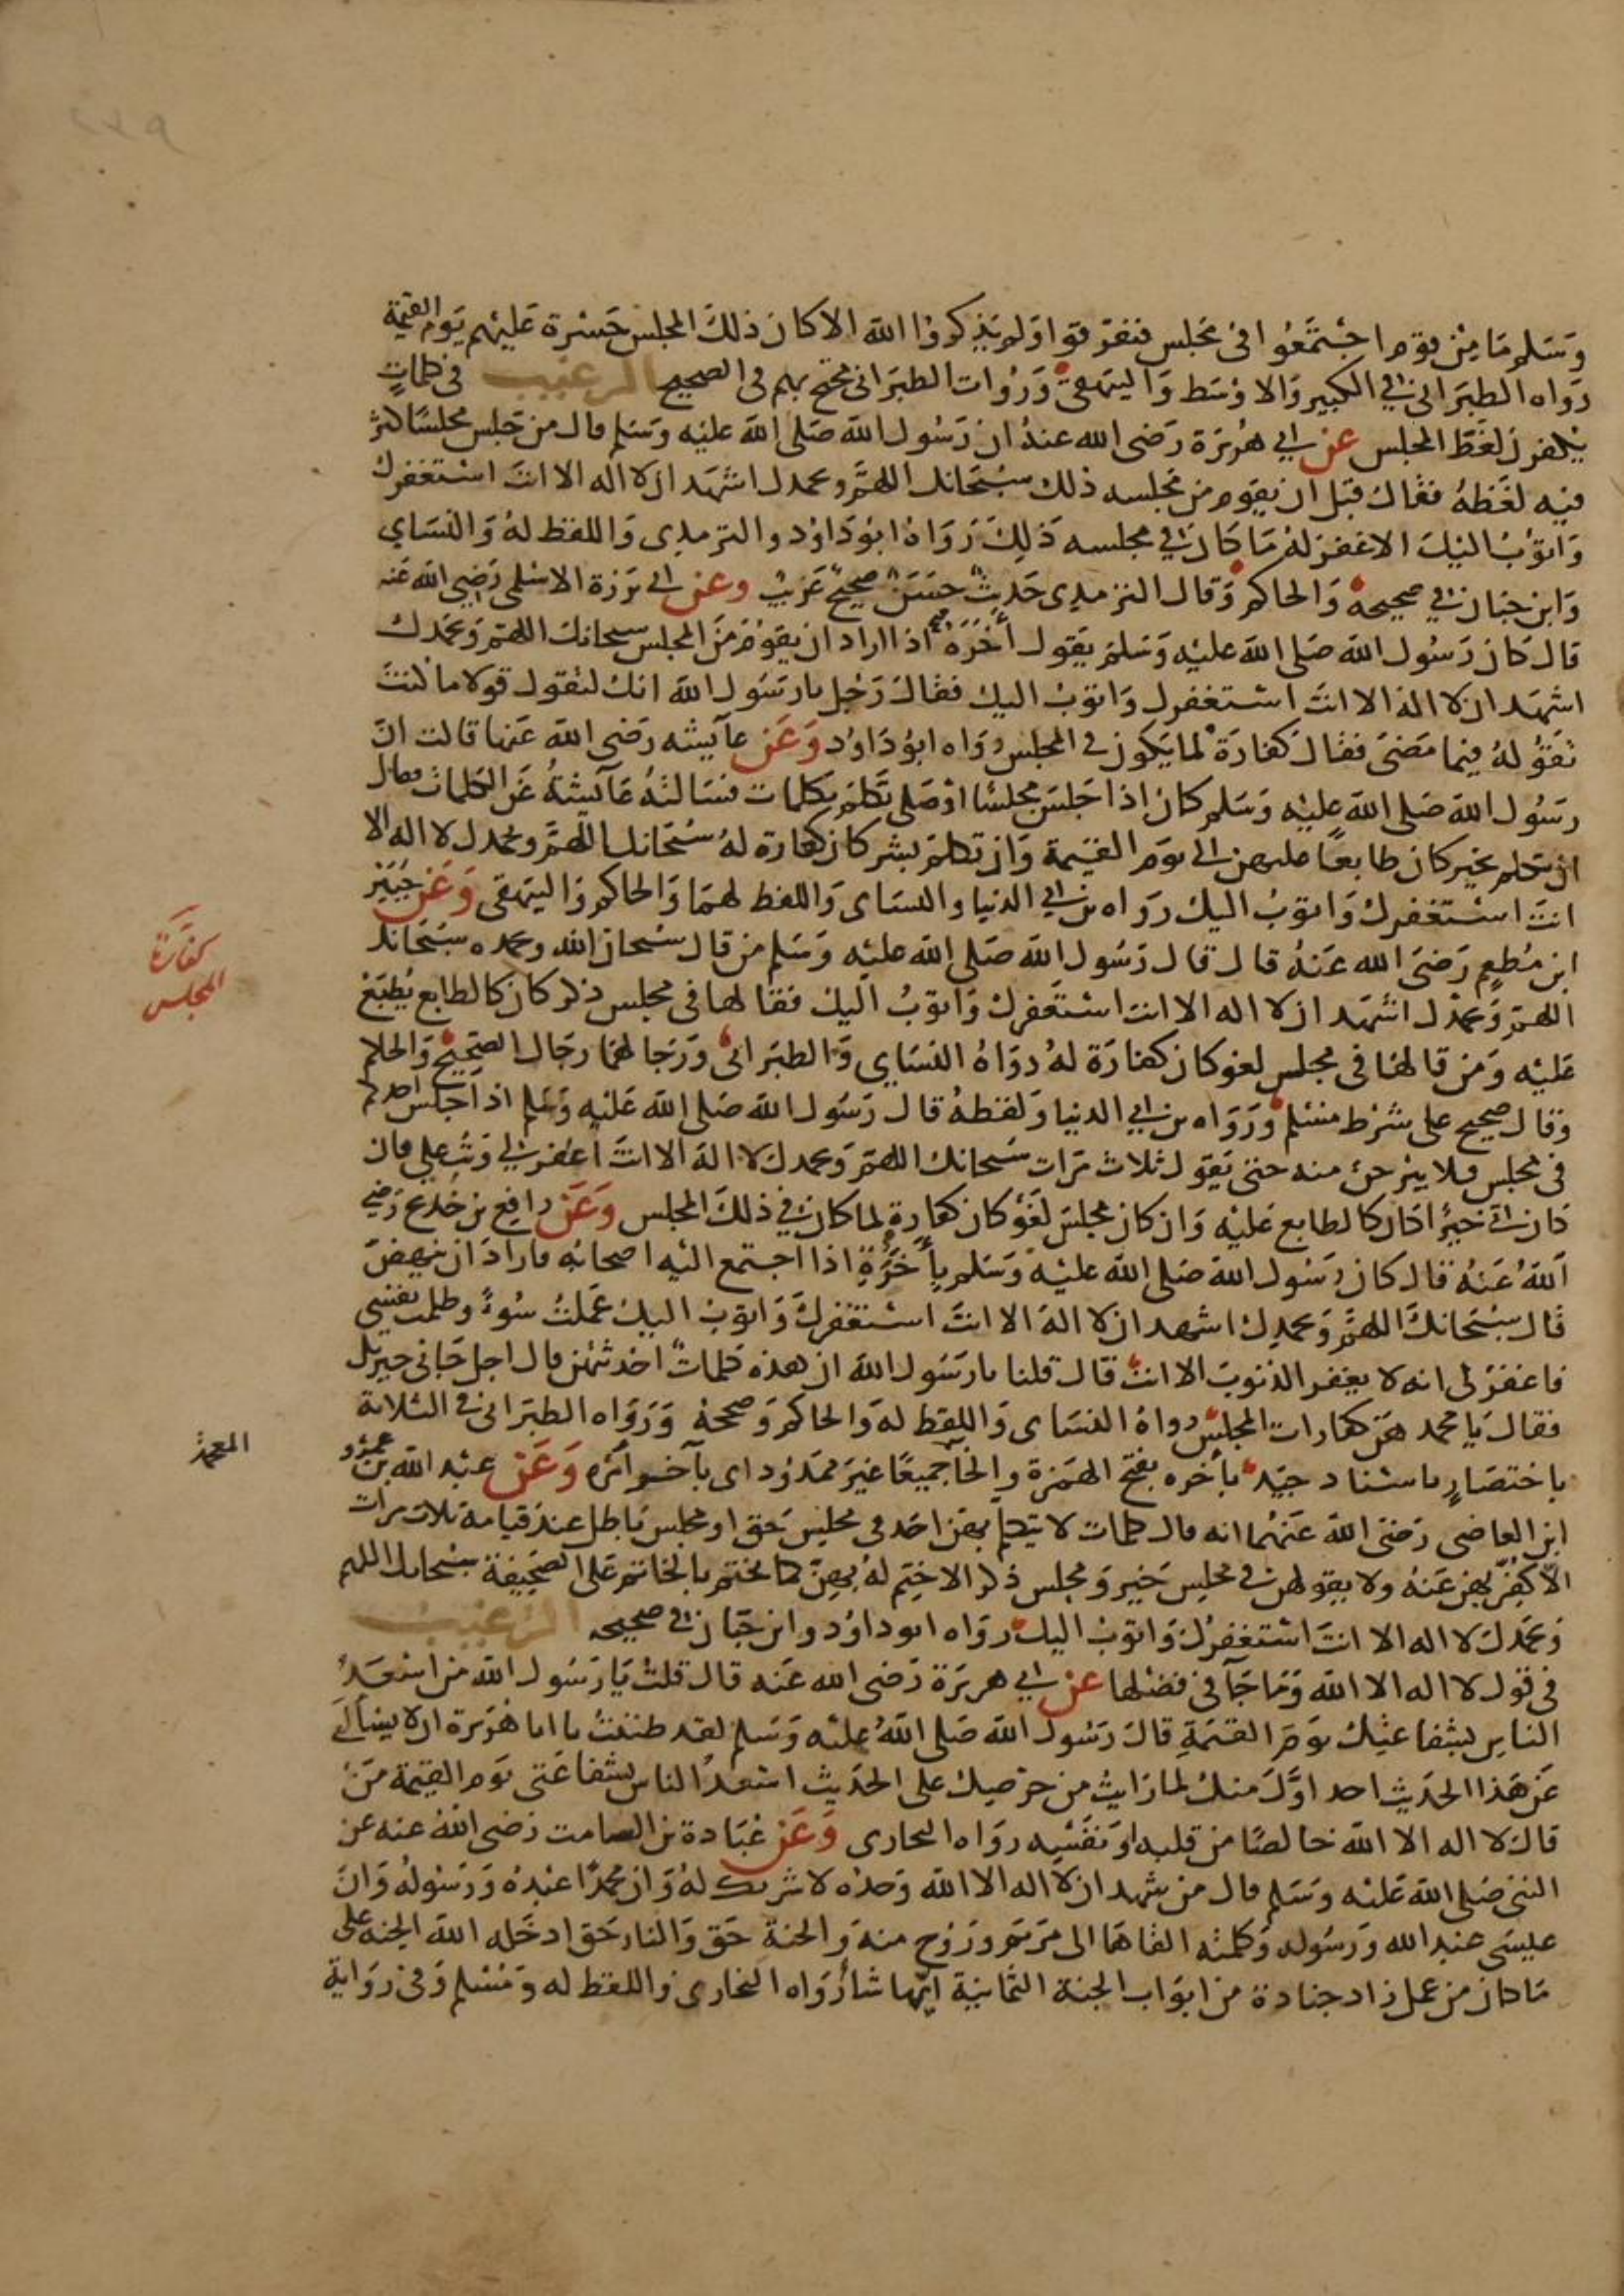 ٢٣٩
وَسَلم مَا مِنْ قوم اجْتَمَعُوا فى مَجْلس فتفرّقوا وَلم يَذكروا الله الا كان ذلكَ المجلس حَسْرة عَليْهم يَوم القيمة
رواه الطبَرانى فى الكبير وَالاوْسَط وَالبيْهقى وَرُوات الطبَرانى محتج بهم فى الصحيح الترغيب فى كلماتٍ
يكفرن لغَطَ المجلس عن ابي هُرَيْرَة رَضى الله عنهُ ان رَسُول الله صَلى الله عليْه وَسَلم قال من جَلس مجلسًا كثر
فيه لغَطهُ فقال قبْل ان يقوم من مَجْلسه ذلك سُبْحَانك اللهمَّ وبحمدك اشهَد ان لا اله الا انتَ استغفرك
وَاتوْبُ اليْكَ الا غفرَ لهُ مَا كَان فى مجلسه ذَلِكَ رَوَاهُ ابوُ دَاوُد والترمذى وَاللفظ لهُ وَالنسَاى
وَابن حبَان فى صحيحه وَالحاكم وَقال الترمذى حَديثٌ حسَنٌ صحيحٌ غَريبٌ وعن ابي بَرزة الاسْلمى رَضِى الله عَنه
قال كَان رَسُول الله صَلى الله عليْه وَسَلم يَقول بأَخَرَة اذا اراد ان يقوْمَ منَ المجلس سبحانك اللهم وَبحمَدك
اشهَد ان لا الهَ الا انتَ استغفرك وَاتوبُ اليك فقالَ رَجُل يا رسَول الله انك لتقول قولا ما كنتَ
تَقوُلهُ فيما مَضىَ فقالَ كفارَة لما يَكون فى المجلس رَوَاه ابوُ دَاوُد وَعَن عآيشه رَضى الله عَنها قالت انّ
رسَول الله صَلى الله عليْه وَسَلم كان اذا جَلسَ مجلسًا اوْ صَلى تَكلم بكلمات فسَالتهُ عَآيشةُ عَن الكلمات فقال
ان تكلم بخير كان طابعًا عليهن الى يوَم القيَمة وَان تكلمَ بشر كان كفارة لهُ سُبْحَانك اللهمَّ وبحمدك لا اله الا
انتَ استغفرك وَاتوبُ اليك رَواه بن ابي الدنيا والنسَاى وَاللفظ لهمَا وَالحاكم وَالبيَهقى وَعَن جُبَيْر
ابن مُطعِم رَضىَ الله عَنهُ قال قال رَسُول الله صَلى الله عليْه وَسَلم من قال سبحان الله وبحمده سبْحَانك
اللهمّ وَبحمْدك اشهَد ان لا اله الا انت استغفرك وَاتوبُ اليك فقالها فى مجلس ذكر كان كالطابع يُطبَعُ
عَليْه وَمَن قالها فى مجلس لغو كان كفارَة لهُ روَاهُ النسَاى وَالطبَرانى وَرَجالهمَا رجَال الصَّحيح وَالحاكم
وقال صحيح على شرْط مسْلم وَرَوَاه بن ابي الدنيا وَلفظهُ قال رَسُول الله صَلى الله عَليْه وَسَلم اذا جَلسَ احدكم
فى مجلس فلا يبرحنّ منه حتى يَقول ثلاث مرَّات سُبحانك اللهمّ وَبحمدك لا الهَ الا انتَ اغفر لى وَتُب علىّ فان
كان اتَى خيرًا كان كالطابع عَليْه وَان كان مجلسَ لغَوْ كان كفارة لما كان فى ذلكَ المجلس وَعَنْ رافع بن خَديج رَضى
اللهُ عَنهُ قال كان رَسُول الله صَلى الله عليْه وَسَلم بأَخَرَةٍ اذا اجتمع اليْه اصحابُه فارَادَ ان يَنهضَ
قال سبْحَانكَ اللهمّ وَبحمدك اشهد ان لا الهَ الا انتَ استغفرك وَاتوبُ اليك عَملتُ سُوءً وظلمت نفسى
فاغفرْ لى انه لا يغفر الذنوب الا انتَ قال قلنا يا رسَول الله ان هذه كلماتٌ احدثتهن قال اجل جَانى جبريل
فقالَ يا محمد هنّ كفارات المجلس رواهُ النسَاى وَاللفظ لهَ وَالحاكم وَصححهُ وَرَوَاه الطبَرانى فى الثلاثة
باختصَارٍ باسْناد جيّد بأخره بفتح الهمَزة والخَا جميعًا غيرَ ممَدوُد اى بآخر أمَره وَعَنْ عبْد الله بن عمرو
ابن العاصى رَضىَ الله عَنهُما انه قال كلمات لا يَتكلم بهن احَد فى مجلس حَق او مجلس بَاطل عند قيامه ثلاث مرات
الّا كفّر بهن عَنهُ ولا يقولهن فى مجلِس خَير وَمجلس ذكر الا ختِم لهُ بهنّ كما يختم بالخاتم عَلى الصّحَيفة سبْحانك اللهم
وَبحَمدَك لا اله الا انتَ استغفرُكَ وَاتوبُ اليك رَواه ابو داوُد وابن حبَّان فى صحيحه الترغيب
فى قول لا اله الا الله وَمَا جَآ فى فضْلها عن ابي هريرَة رَضى الله عَنه قال قلتُ يَا رَسُول الله من اسْعَدُ
الناس بشفاعتِك يوَم القيَمَةِ قالَ رَسُول الله صَلى اللهُ عليْه وَسَلم لقد ظننتُ يا ابا هُرَيرة ان لا يسْألنى
عَن هَذا الحَديث احد اوَّلَ منك لما رَايتُ من حرْصِك على الحَديث اسْعدُ الناس بشفاعَتى يَوم القيَمة مَنْ
قالَ لا اله الا الله خالصًا من قلبه او نفسِه روَاه البخارى وَعَن عُبَادة بن الصامت رَضى اللهُ عنه عن
النبى صَلى الله عَليْه وَسَلم قال من شَهد ان لا اله الا الله وَحدَه لا شريك لهُ وَان محمدًا عبْدهُ وَرَسُولهُ وَانّ
عيسَى عبْد الله وَرَسُوله وَكلمتُه القاهَا الى مَرْيَم وَرُوح منهُ وَالجنة حَق وَالنار حَق ادخَله الله الجنة على
مَا كان من عمل زاد جنادة من ابوَاب الجنة الثمانيَة ايّها شَأ رَوَاه البخارى وَاللفظ له وَمسْلم وَفى رَوَاية
كفّارَة
المجلس